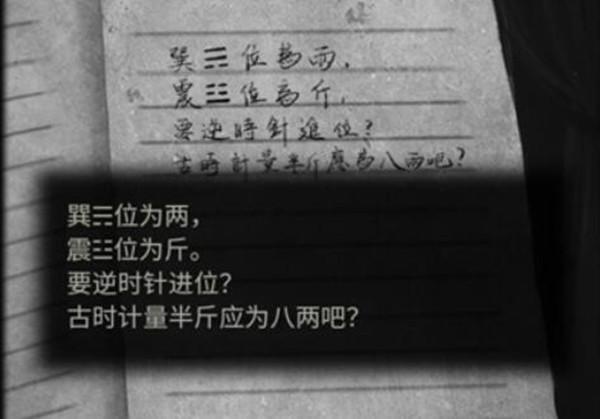 巽☴位為兩.
震☳位為斤.
要逆時針進位?
古時計量半斤應為八兩吧?
巽☴位为两，
震☳位为斤。
要逆时针进位?
古时计量半斤应为八两吧?